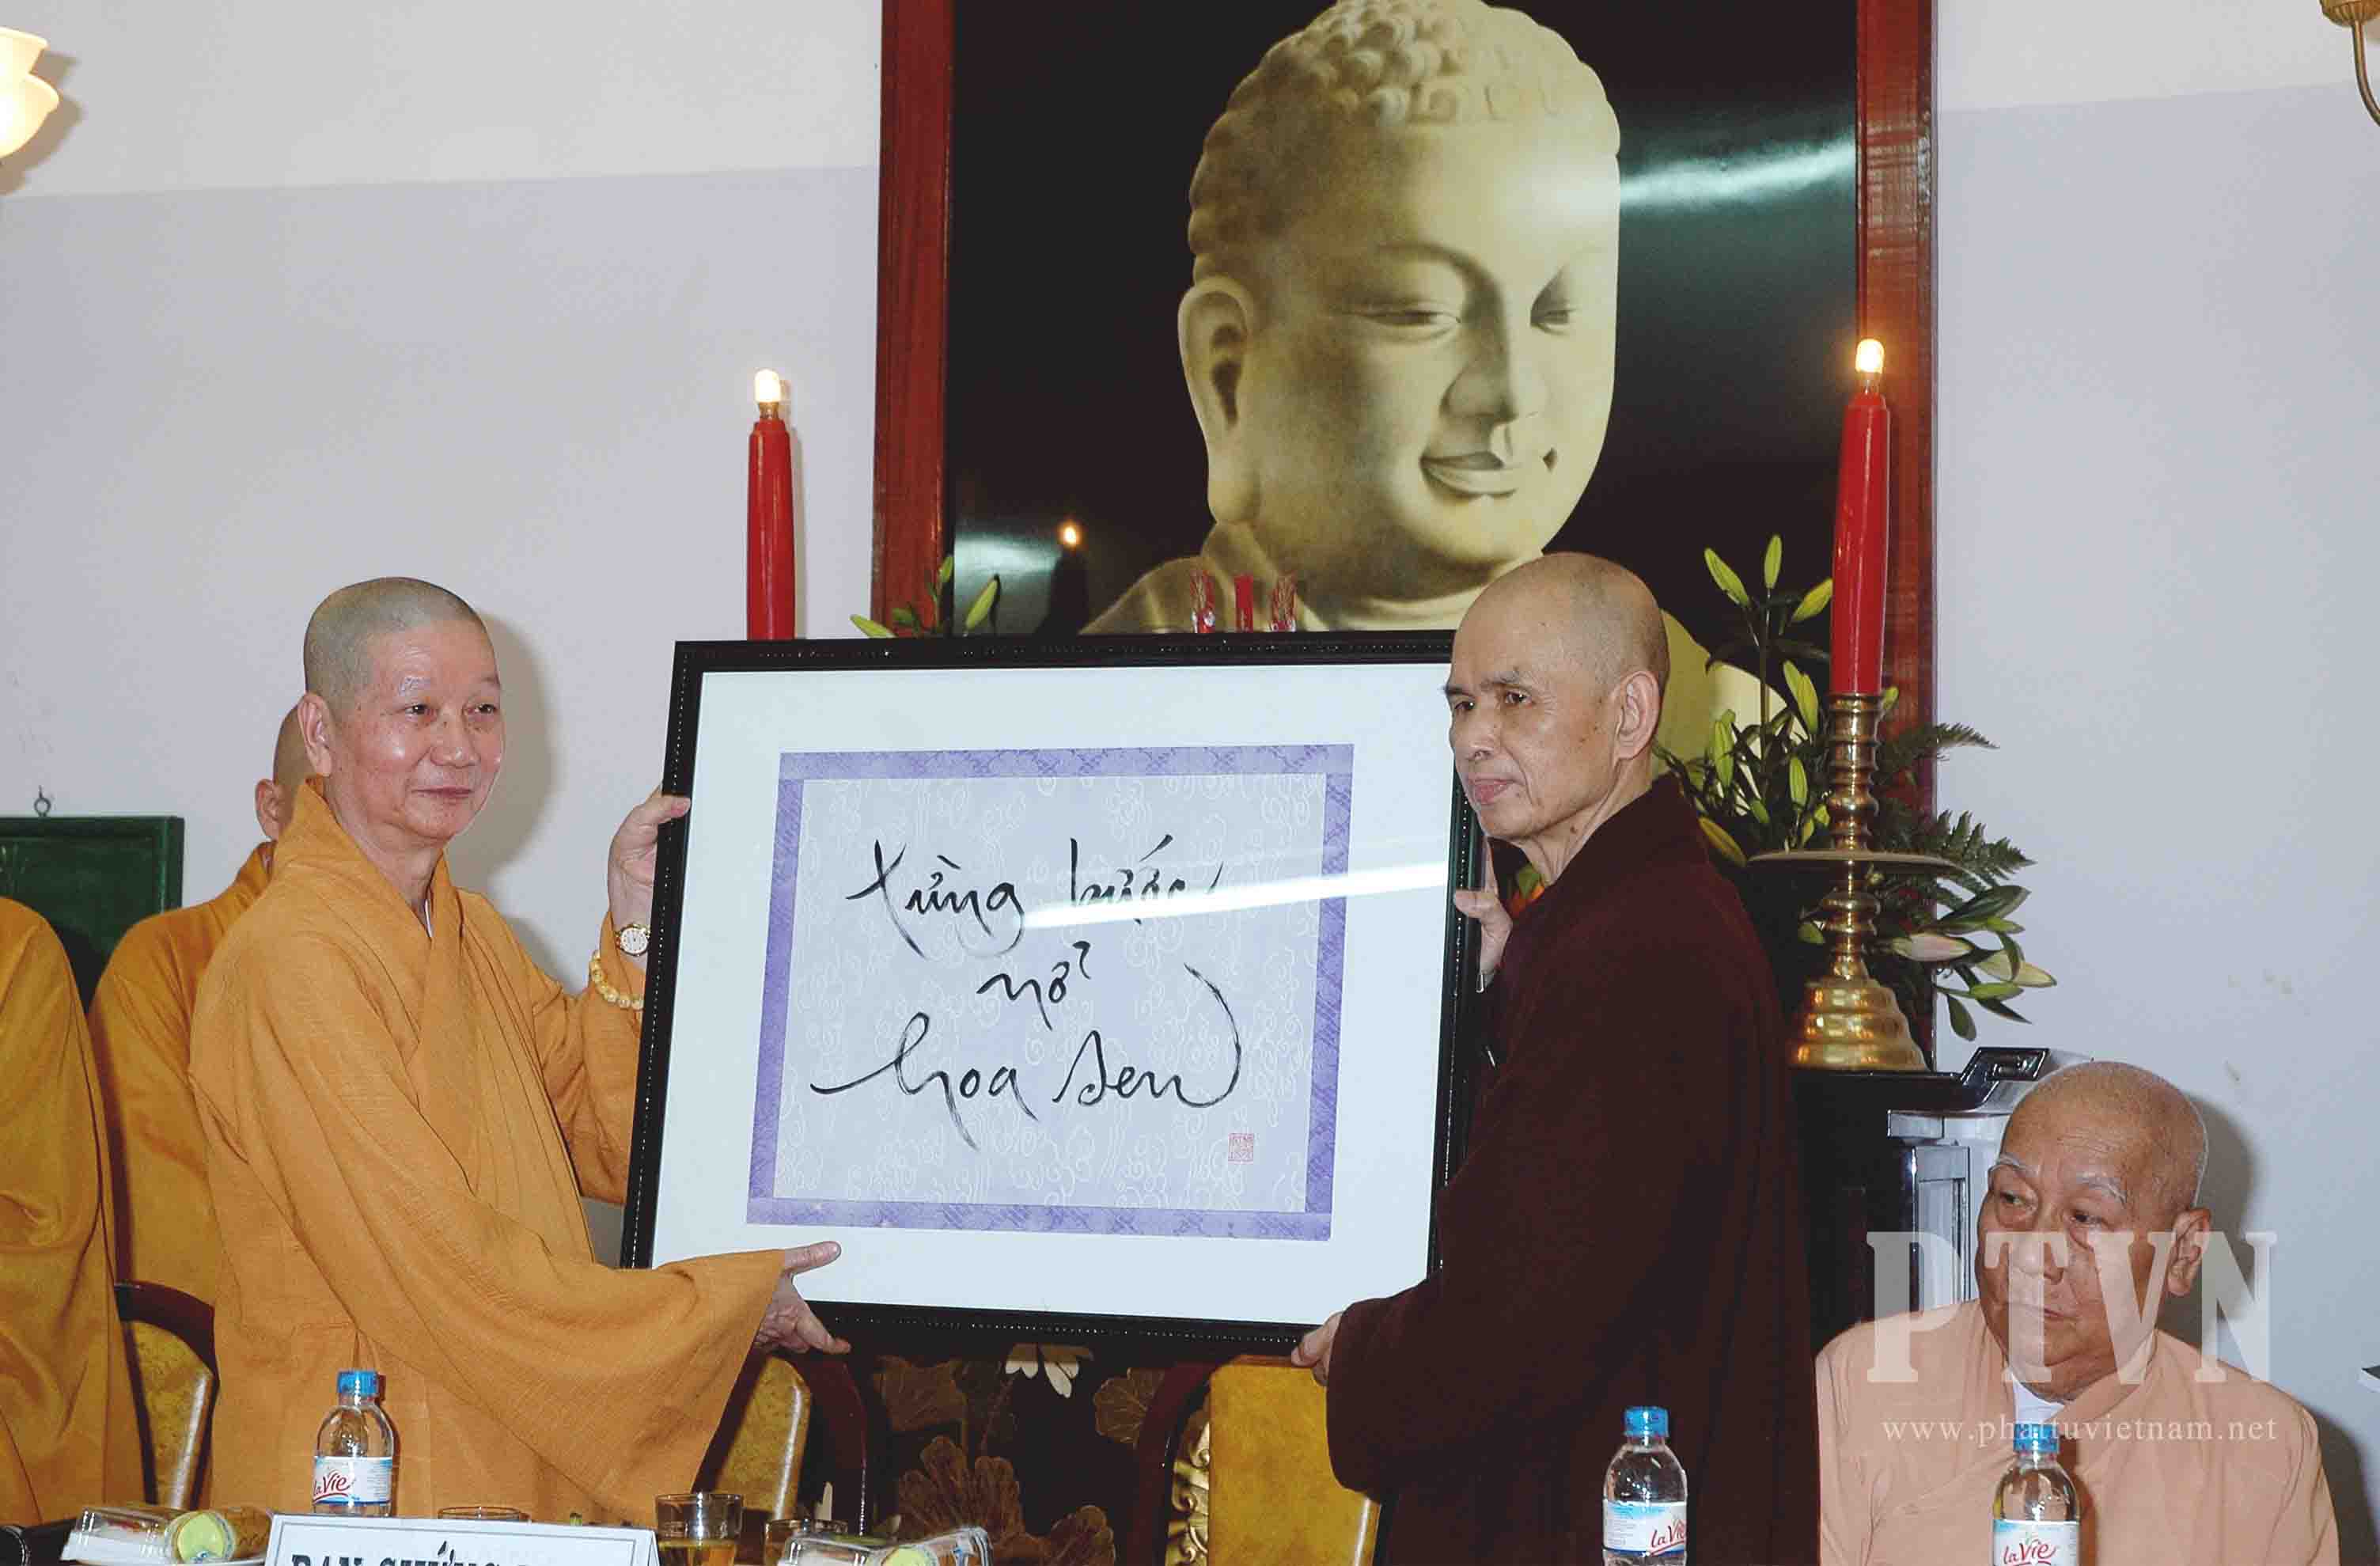 từng bước
nở
hoa sen
PTVN
www.phattuvietnam.net
laVie
laVie
laVie
BAN CHỨNG